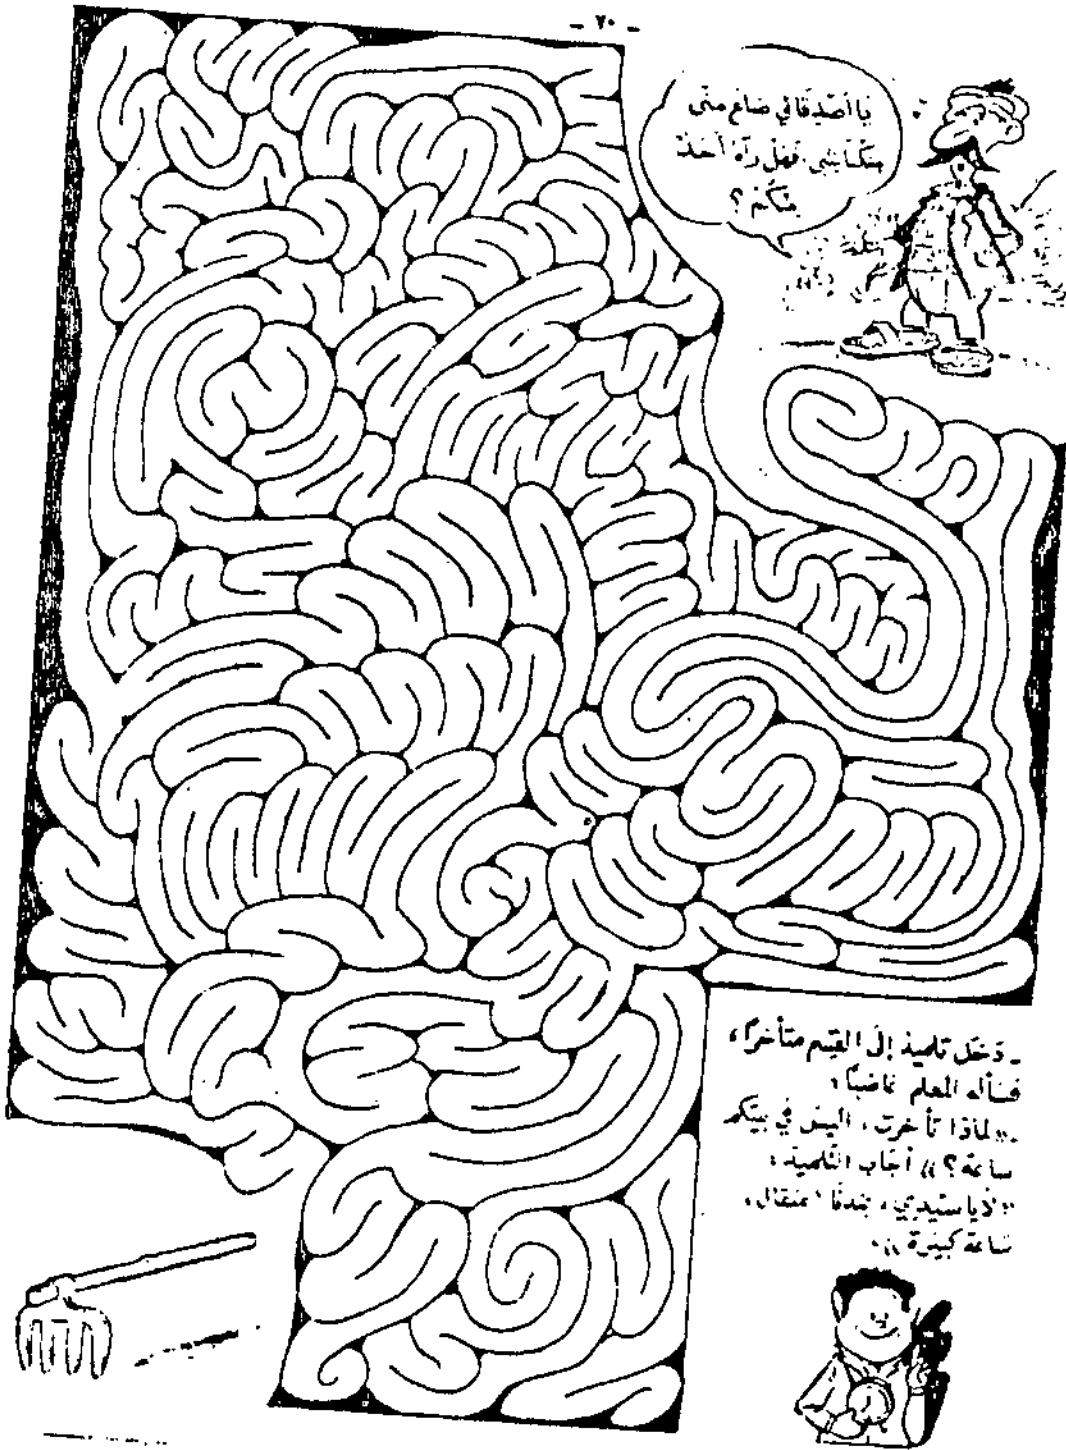 - ٢٠ -
يَا أَصْدِقَائِي ضَاعَ مِنِّي
فَهَلْ رَآهُ أَحَدٌ
مِنْكُمْ ؟
ـ دَخَلَ تلميذ إلى القِسْم متأخرًا،
فسَأله المعلم غاضبًا:
ـ «لماذا تأخرت، أليس في بيتكم
ساعة؟» أجاب التلميذ:
«لا يا سيدي، عندنا
ساعة كبيرة».